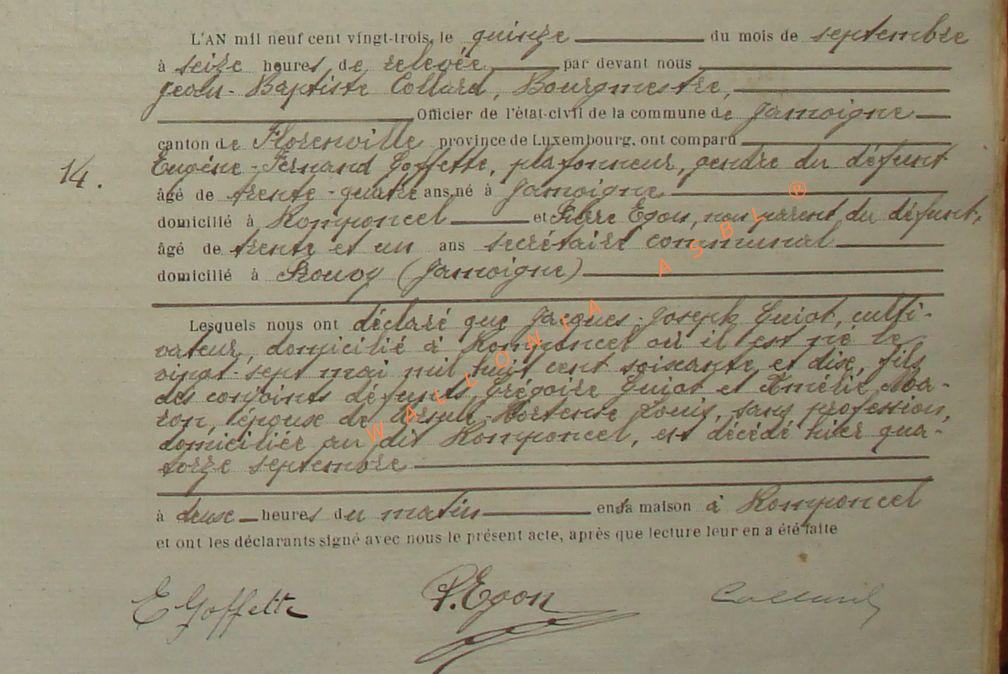 L'AN mil neuf cent vingt-trois, le quinze du mois de septembre
à seize heures, de relevée par devant nous
Jean-Baptiste Collard, Bourgmestre,
Officier de l'état-civil de la commune de Jamoigne
canton de Florenville province de Luxembourg, ont comparu
Eugène-Fernand Goffette, plafonneur, gendre du défunt
14. âgé de trente-quatre ans, né à Jamoigne
domicilié à Romponcel et Pierre Egon, non parent du défunt,
âgé de trente et un ans secrétaire communal
domicilié à Prouvy (Jamoigne)
Lesquels nous ont déclaré que Jacques-Joseph Guiot, culti-
vateur, domicilié à Romponcel où il est né le
vingt-sept mai mil huit cent soixante et dix, fils
des conjoints défunts, Grégoire Guiot et Aimérie Ma-
ron, époux de Hortense Louis, sans profession,
domiciliée au dit Romponcel, est décédé hier qua-
torze septembre
à deux heures du matin en sa maison à Romponcel
et ont les déclarants signé avec nous le présent acte, après que lecture leur en a été faite
E Goffette P. Egon Collard
WALLONIA ASBL ®